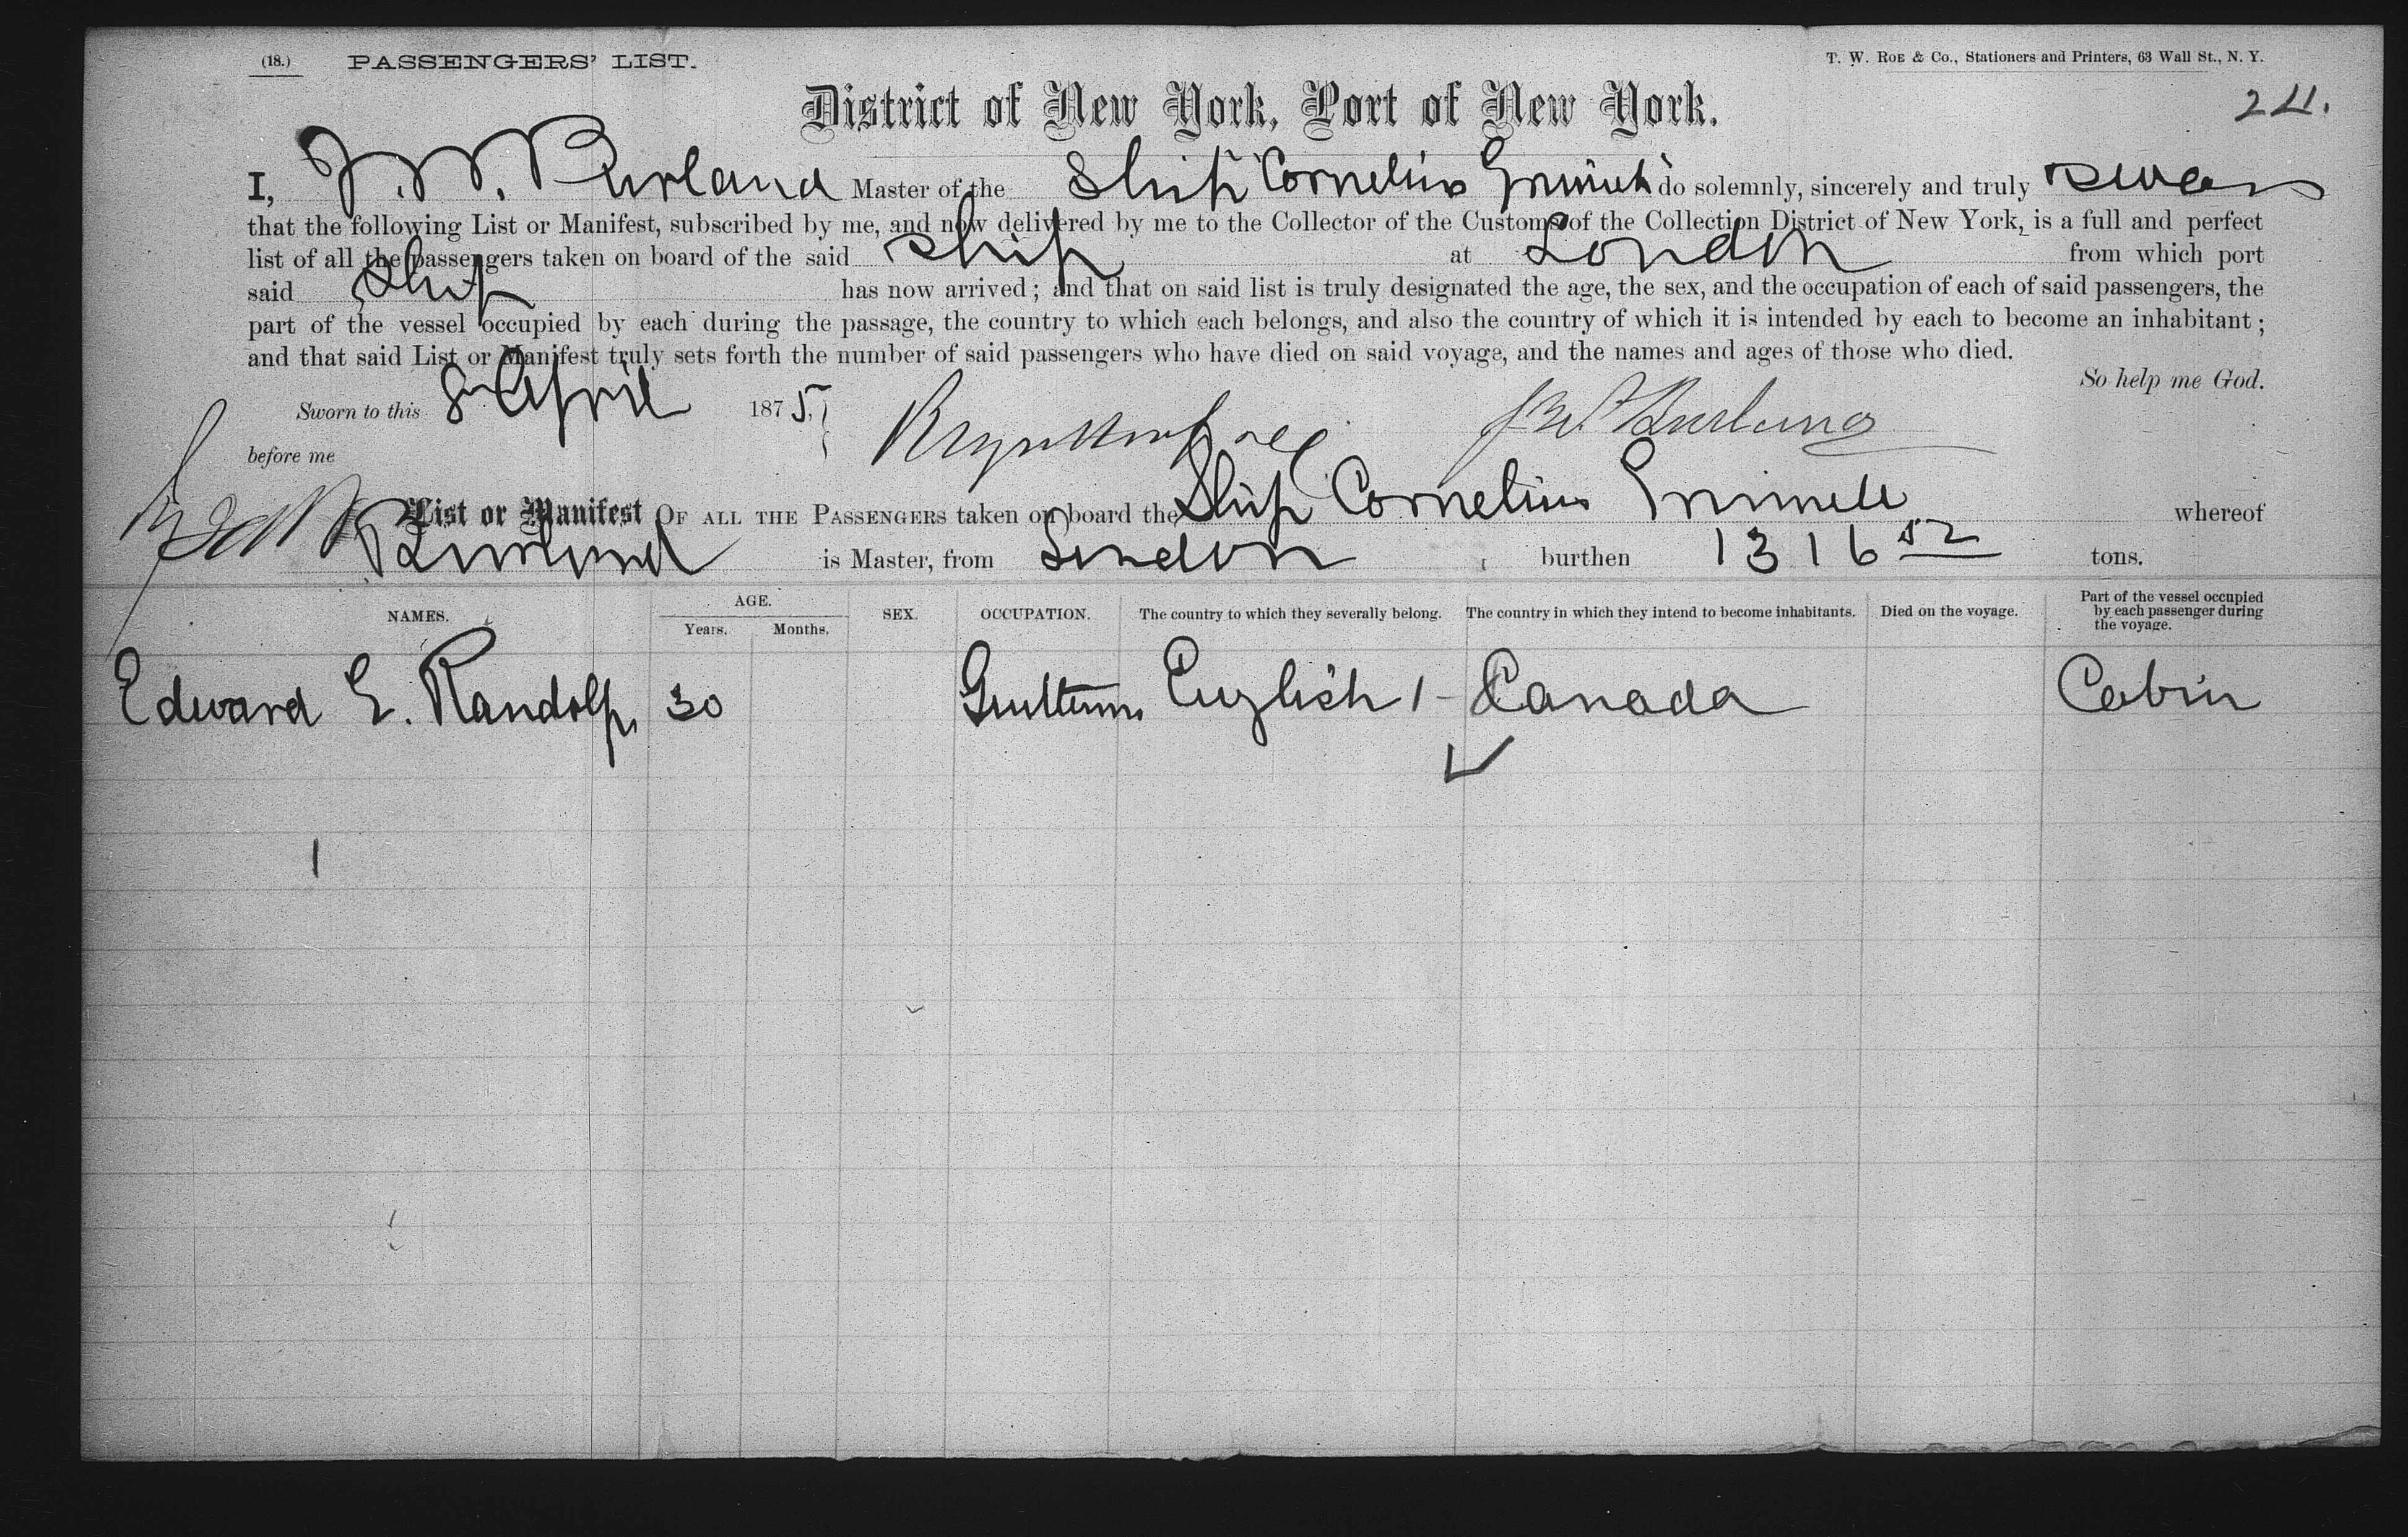 (18.) PASSENGERS' LIST. T. W. ROE & Co., Stationers and Printers, 63 Wall St., N. Y.
District of New York, Port of New York.
I, J. W. Master of the Ship Cornelius Grinnell do solemnly, sincerely and truly swear
that the following List or Manifest, subscribed by me, and now delivered by me to the Collector of the Customs of the Collection District of New York, is a full and perfect
list of all the passengers taken on board of the said ship at London from which port
said ship has now arrived; and that on said list is truly designated the age, the sex, and the occupation of each of said passengers, the
part of the vessel occupied by each during the passage, the country to which each belongs, and also the country of which it is intended by each to become an inhabitant;
and that said List or Manifest truly sets forth the number of said passengers who have died on said voyage, and the names and ages of those who died.
So help me God.
Sworn to this 8 April 1875.
before me
List or Manifest OF ALL THE PASSENGERS taken on board the Ship Cornelius Grinnell whereof
is Master, from London burthen 1316 52 tons.
NAMES. AGE. Years. Months. SEX. OCCUPATION. The country to which they severally belong. The country in which they intend to become inhabitants. Died on the voyage. Part of the vessel occupied by each passenger during the voyage.
Edward E. Randolph 30 English 1 Canada Cabin
1